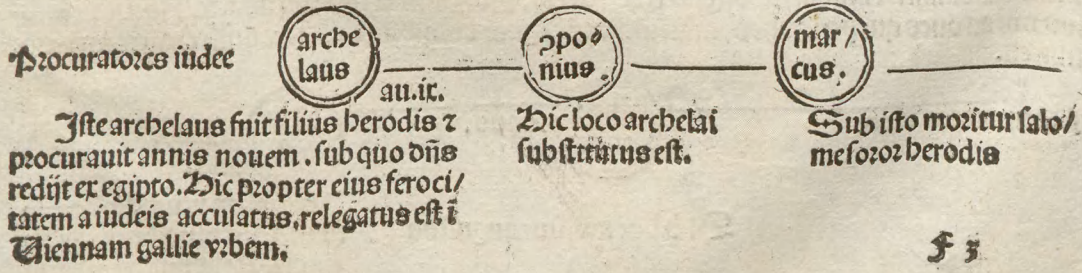 Procuratores iudee
arche
laus
an.ix.
ↄpo⸗
nius.
mar/
cus.
Iste archelaus fuit filius herodis ⁊
procurauit annis nouem. sub quo dñs
redijt ex egipto. Hic propter eius feroci/
tatem a iudeis accusatus, relegatus est ĩ
Uiennam gallie vrbem.
Hic loco archelai
substitutus est.
Sub isto moritur salo/
me soror herodis
f 3